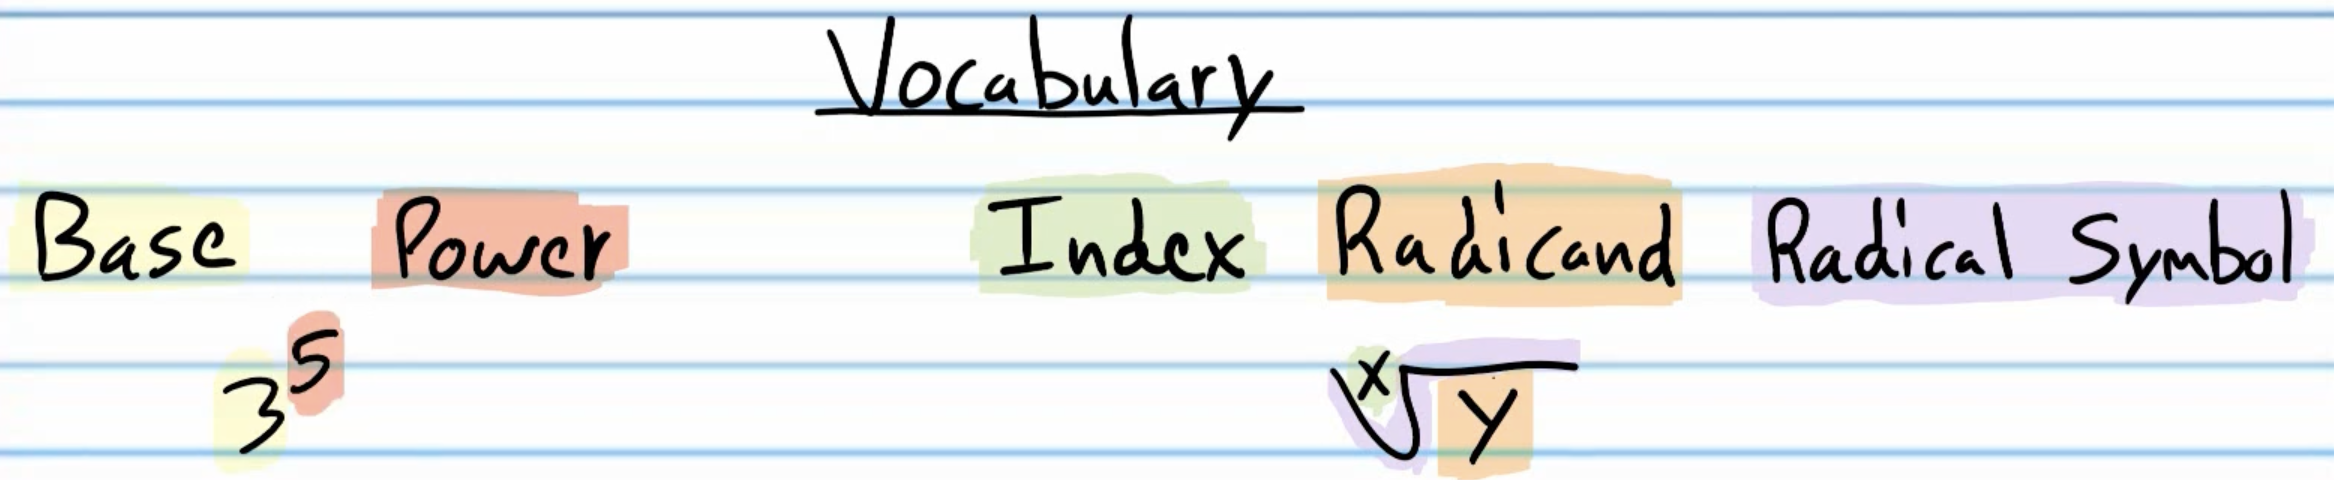 Vocabulary
Base Power Index Radicand Radical Symbol
3⁵ ˣ√y